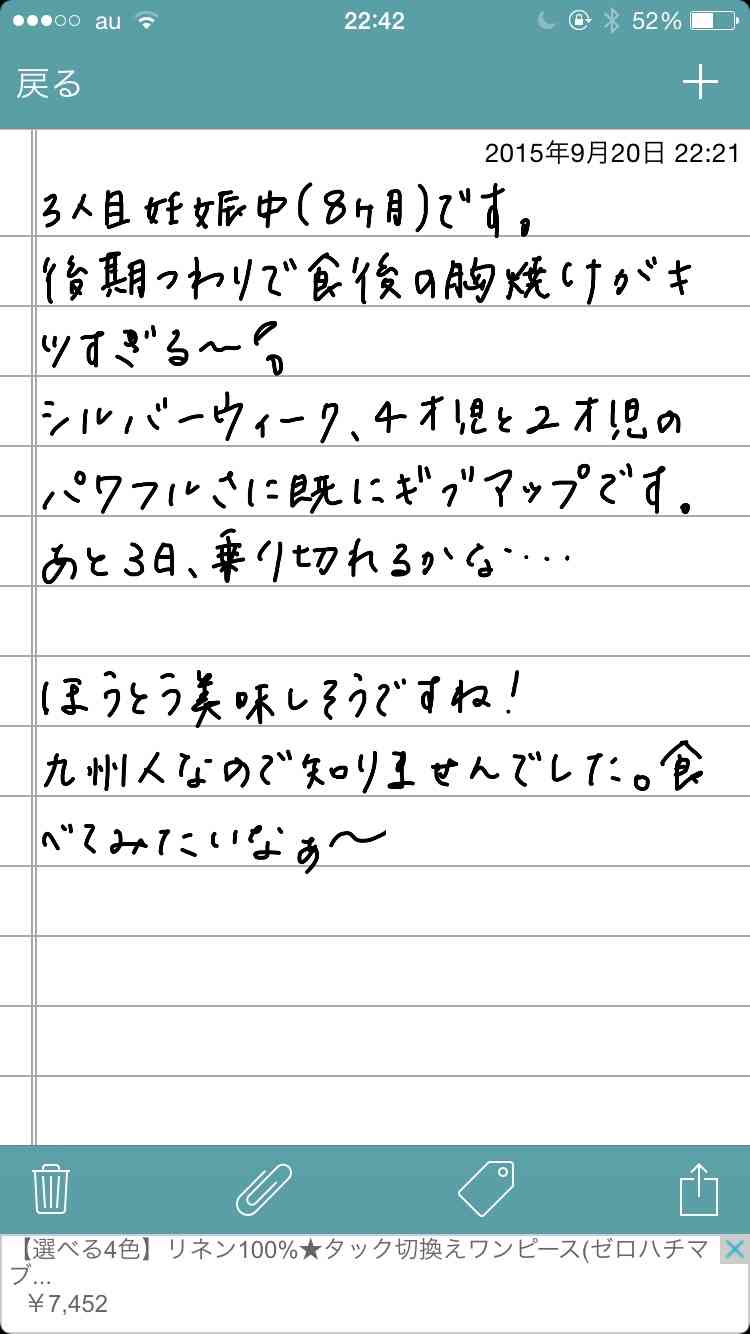 au 22:42 52%
戻る
2015年9月20日 22:21
3人目妊娠中(8ヶ月)です。
後期つわりで食後の胸焼けがキ
ツすぎる〜
シルバーウィーク、4才児と2才児の
パワフルさに既にギブアップです。
あと3日、乗り切れるかな‥‥
ほうとう美味しそうですね!
九州人なので知りませんでした。食
べてみたいなぁ〜
【選べる4色】リネン100%★タック切換えワンピース(ゼロハチマ
ブ...
￥7,452